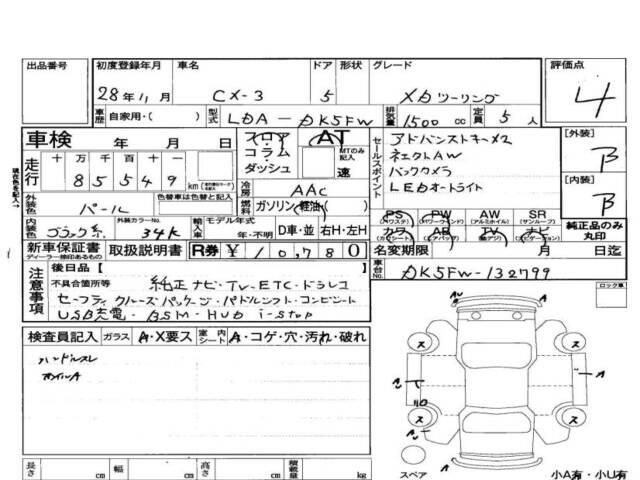 出品番号 初度登録年月 車名 ドア 形状 グレード 評価点
28年11月 CX-3 5 XDツーリング 4
車歴 自家用・( ) 型式 LDA-DK5FW 排気量 1500cc 定員 5人
車検 年 月 日
フロア・コラム・ダッシュ AT MTのみ記入 速
走行 十 万 千 百 十 一
85549 km
冷房 AAC
燃料 ガソリン・軽油・( )
外装色 パール 色替車は色替と記入
内装色 ブラック系 外装カラーNo. 34K 輸入車 モデル年式 年・不明 D車・並 右H・左H
セールスポイント
アドバンストキー×2
ネェクトAW
バックカメラ
LEDオートライト
[外装] B
[内装] B
PS (パワステ) PW (パワーウインド) AW (アルミホイル) SR (サンルーフ)
カワ (カワシート) AB (エアバッグ) TV (純デジ) ナビ
純正品のみ丸印
新車保証書 ディーラー捺印あるもの 取扱説明書 R券 ¥10,780 名変期限 月 日迄
車台No. DK5FW-132799
注意事項
後日品[ ]
不具合箇所等 純正ナビ・TV・ETC・ドラレコ
セーフティクルーズパッケージ・パドルシフト・コンビシート
USB充電・BSM・HUD i-stop
検査員記入 ガラス A・X要ス 室内シート A・コゲ・穴・汚れ・破れ
ハンドルスレ
ホイルA
ロック車
現在色を記入
A
ス ス
A
ス ス
スペア
長さ cm 幅 cm 高さ cm 積載量 kg
小A有・小U有